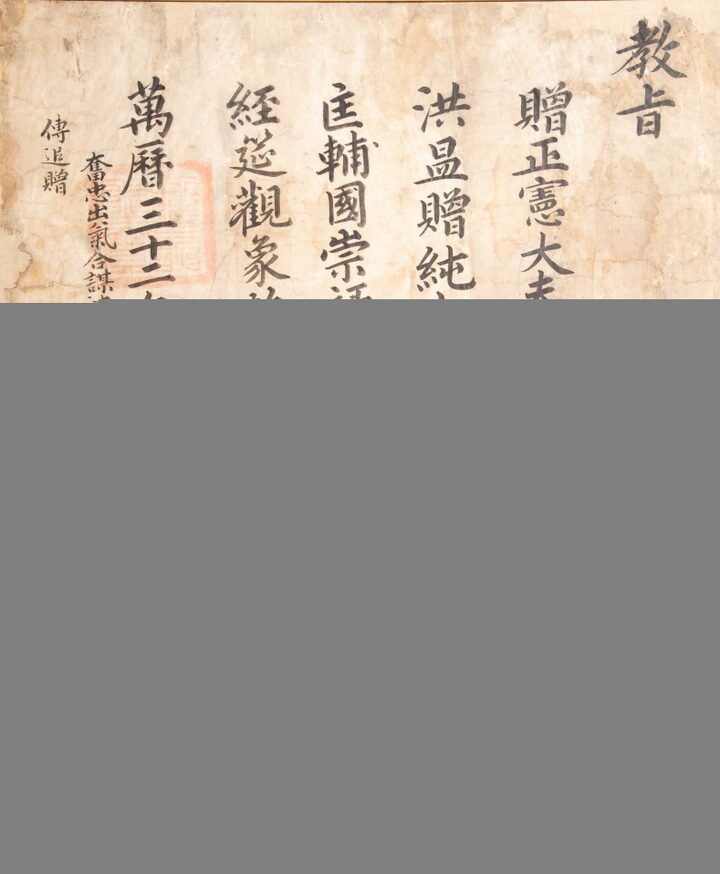 教旨
贈正憲大夫
洪昷贈純
匡輔國崇祿
經筵觀象
萬曆三十二
奮忠出氣合謀
傳追贈